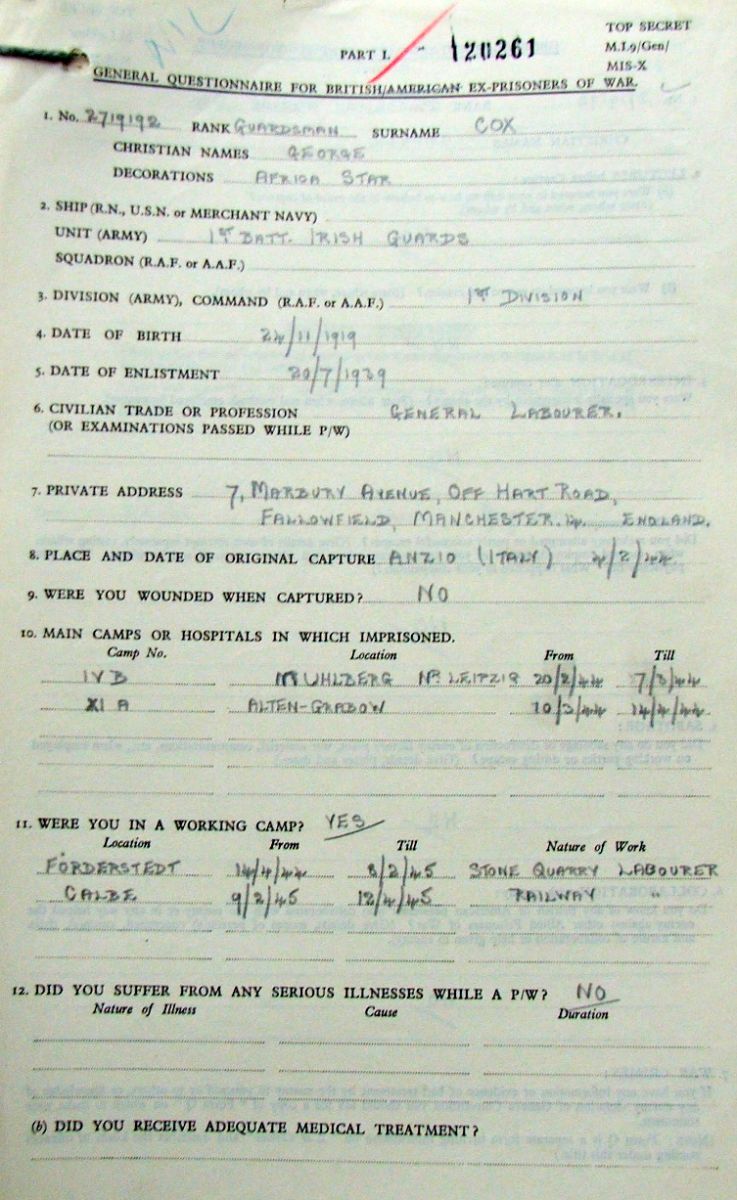 PART I.
120261
TOP SECRET
M.I.9/Gen/
MIS-X
GENERAL QUESTIONNAIRE FOR BRITISH/AMERICAN EX-PRISONERS OF WAR.
1. No. 2719192 RANK GUARDSMAN SURNAME COX
CHRISTIAN NAMES GEORGE
DECORATIONS AFRICA STAR
2. SHIP (R.N., U.S.N. or MERCHANT NAVY)
UNIT (ARMY) 1ST BATT. IRISH GUARDS
SQUADRON (R.A.F. or A.A.F.)
3. DIVISION (ARMY), COMMAND (R.A.F. or A.A.F.) 1ST DIVISION
4. DATE OF BIRTH 24/11/1919
5. DATE OF ENLISTMENT 20/7/1939
6. CIVILIAN TRADE OR PROFESSION GENERAL LABOURER.
(OR EXAMINATIONS PASSED WHILE P/W)
7. PRIVATE ADDRESS 7, MARBURY AVENUE, OFF HART ROAD,
FALLOWFIELD, MANCHESTER. 14. ENGLAND.
8. PLACE AND DATE OF ORIGINAL CAPTURE ANZIO (ITALY) 4/2/44
9. WERE YOU WOUNDED WHEN CAPTURED? NO
10. MAIN CAMPS OR HOSPITALS IN WHICH IMPRISONED.
Camp No. Location From Till
IV B MUHLBERG NR LEIPZIG 20/2/44 7/3/44
XI A ALTEN-GRABOW 10/3/44 14/4/44
11. WERE YOU IN A WORKING CAMP? YES
Location From Till Nature of Work
FÖRDERSTEDT 14/4/44 8/2/45 STONE QUARRY LABOURER
CALBE 9/2/45 12/4/45 RAILWAY "
12. DID YOU SUFFER FROM ANY SERIOUS ILLNESSES WHILE A P/W? NO
Nature of Illness Cause Duration
(b) DID YOU RECEIVE ADEQUATE MEDICAL TREATMENT?